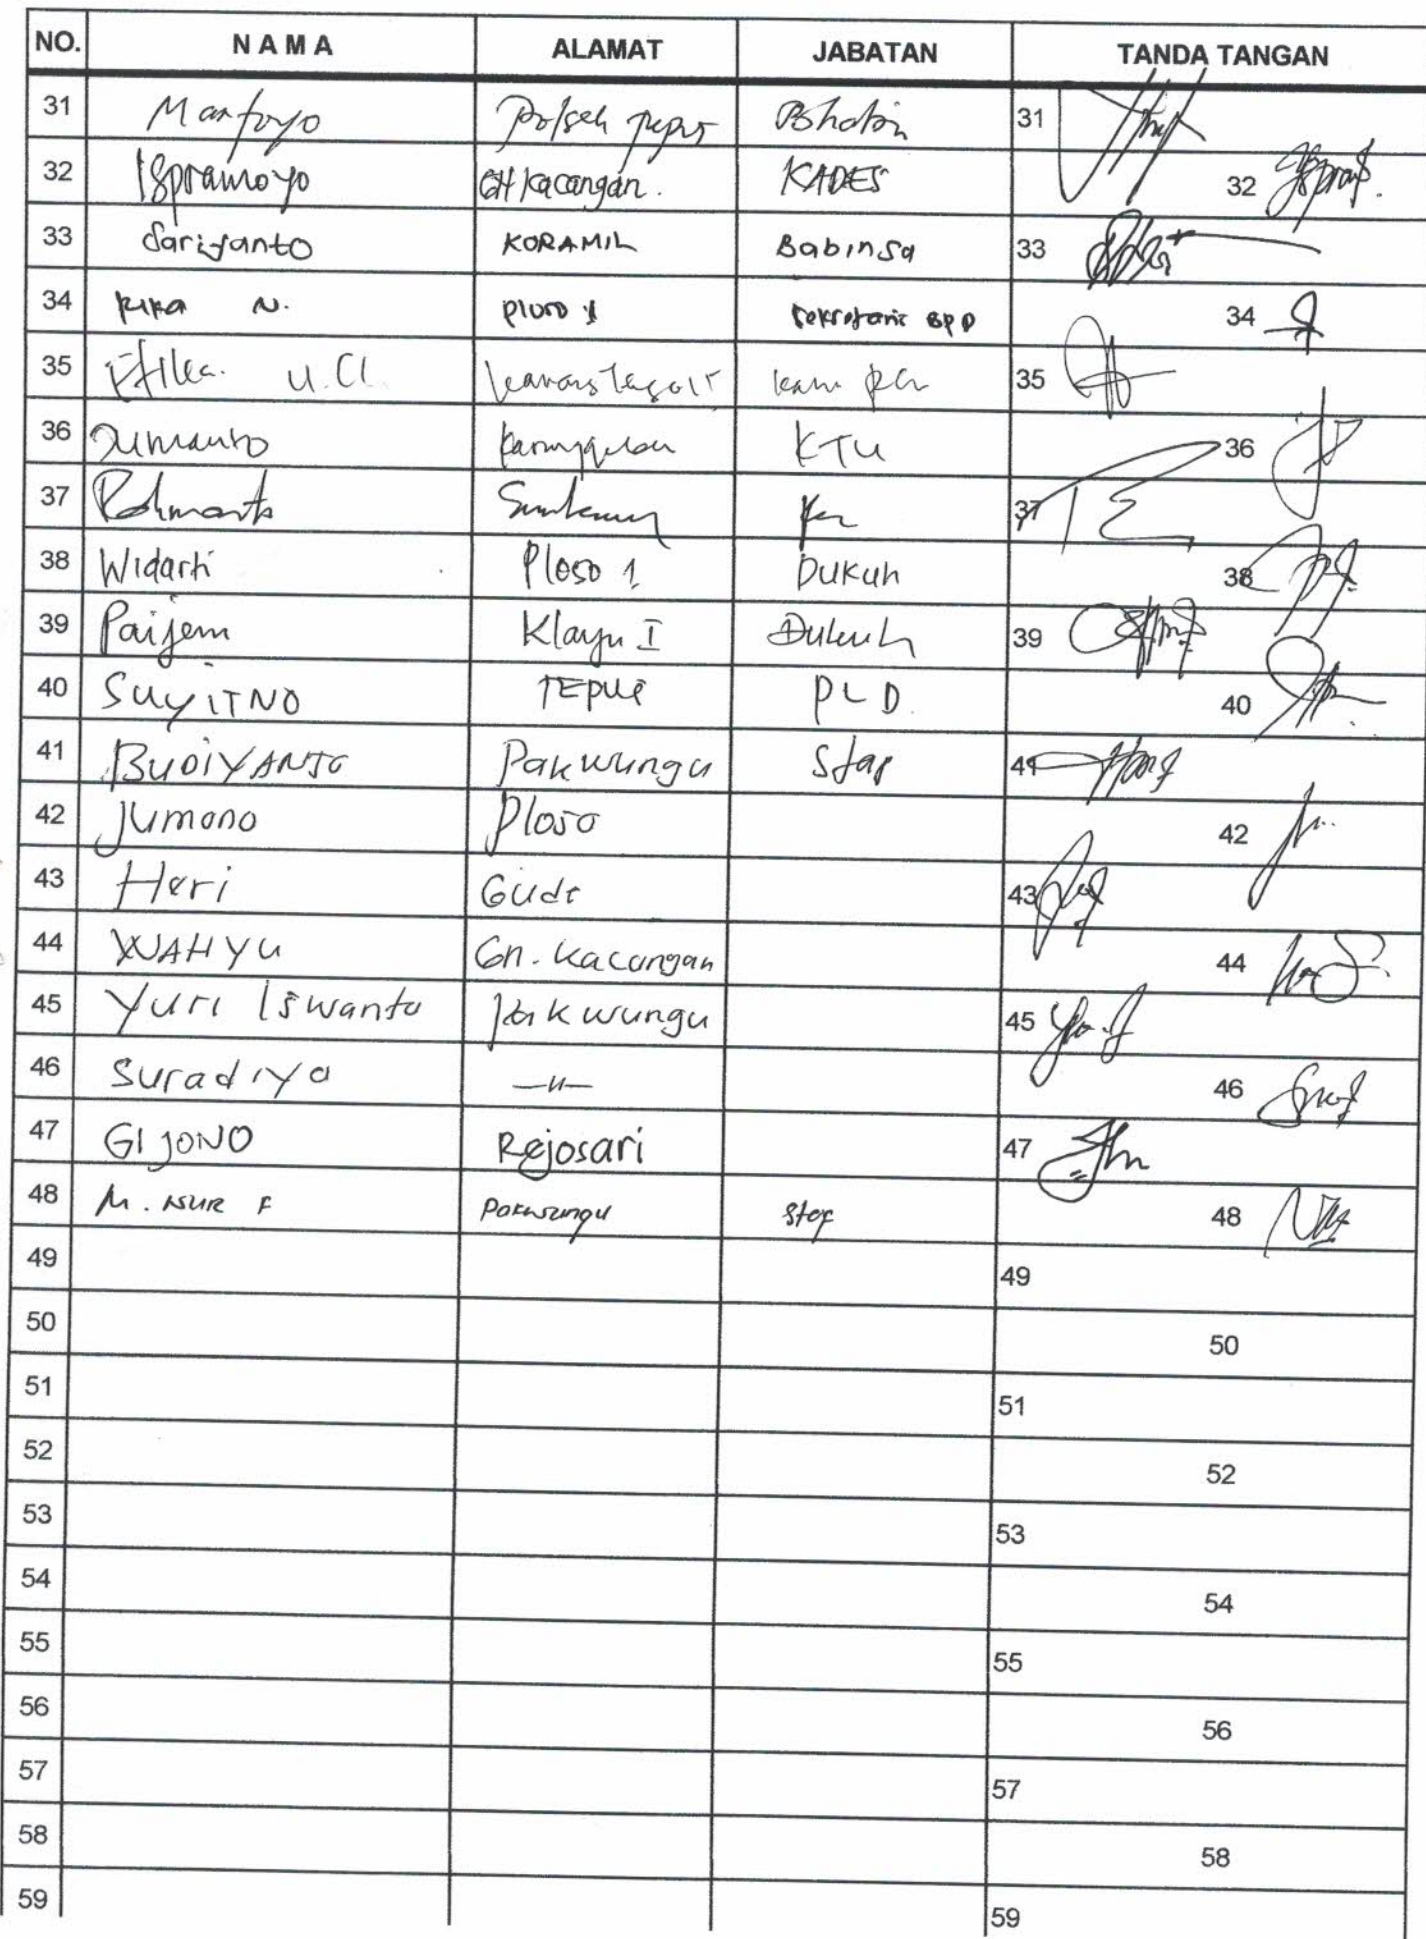 NO. NAMA ALAMAT JABATAN TANDA TANGAN
31 Martoyo Polsek Tepus 31
32 Ispramoyo GH Kacangan. KADES 32
33 Sariyanto KORAMIL Babinsa 33
34 Rika N. Ploso 1 Sekretaris BPD 34
35 35
36 Jumanto KTU 36
37 Rohmanto 37
38 Widarti Ploso 1 Dukuh 38
39 Paijem Klayu I Dukuh 39
40 SUYITNO TEPUS PLD 40
41 BUDIYANTO Pakwungu Staf 41
42 Jumono Ploso 42
43 Heri Gude 43
44 WAHYU Gn. Kacangan 44
45 Yuri Iswanto Pakwungu 45
46 Suradiyo —〃— 46
47 GIJONO Rejosari 47
48 M. NUR F Pakwungu Staf 48
49 49
50 50
51 51
52 52
53 53
54 54
55 55
56 56
57 57
58 58
59 59